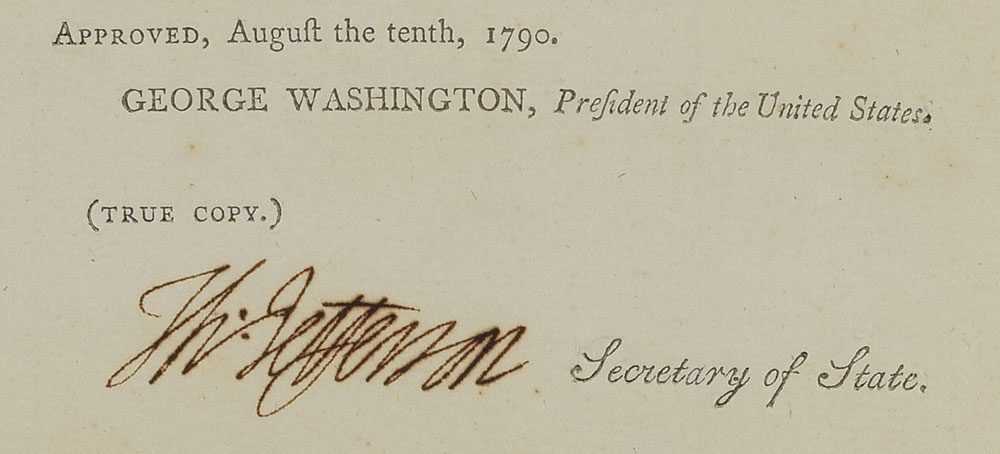 APPROVED, Auguſt the tenth, 1790.
GEORGE WASHINGTON, Preſident of the United States.
(TRUE COPY.)
Th: Jefferson Secretary of State.